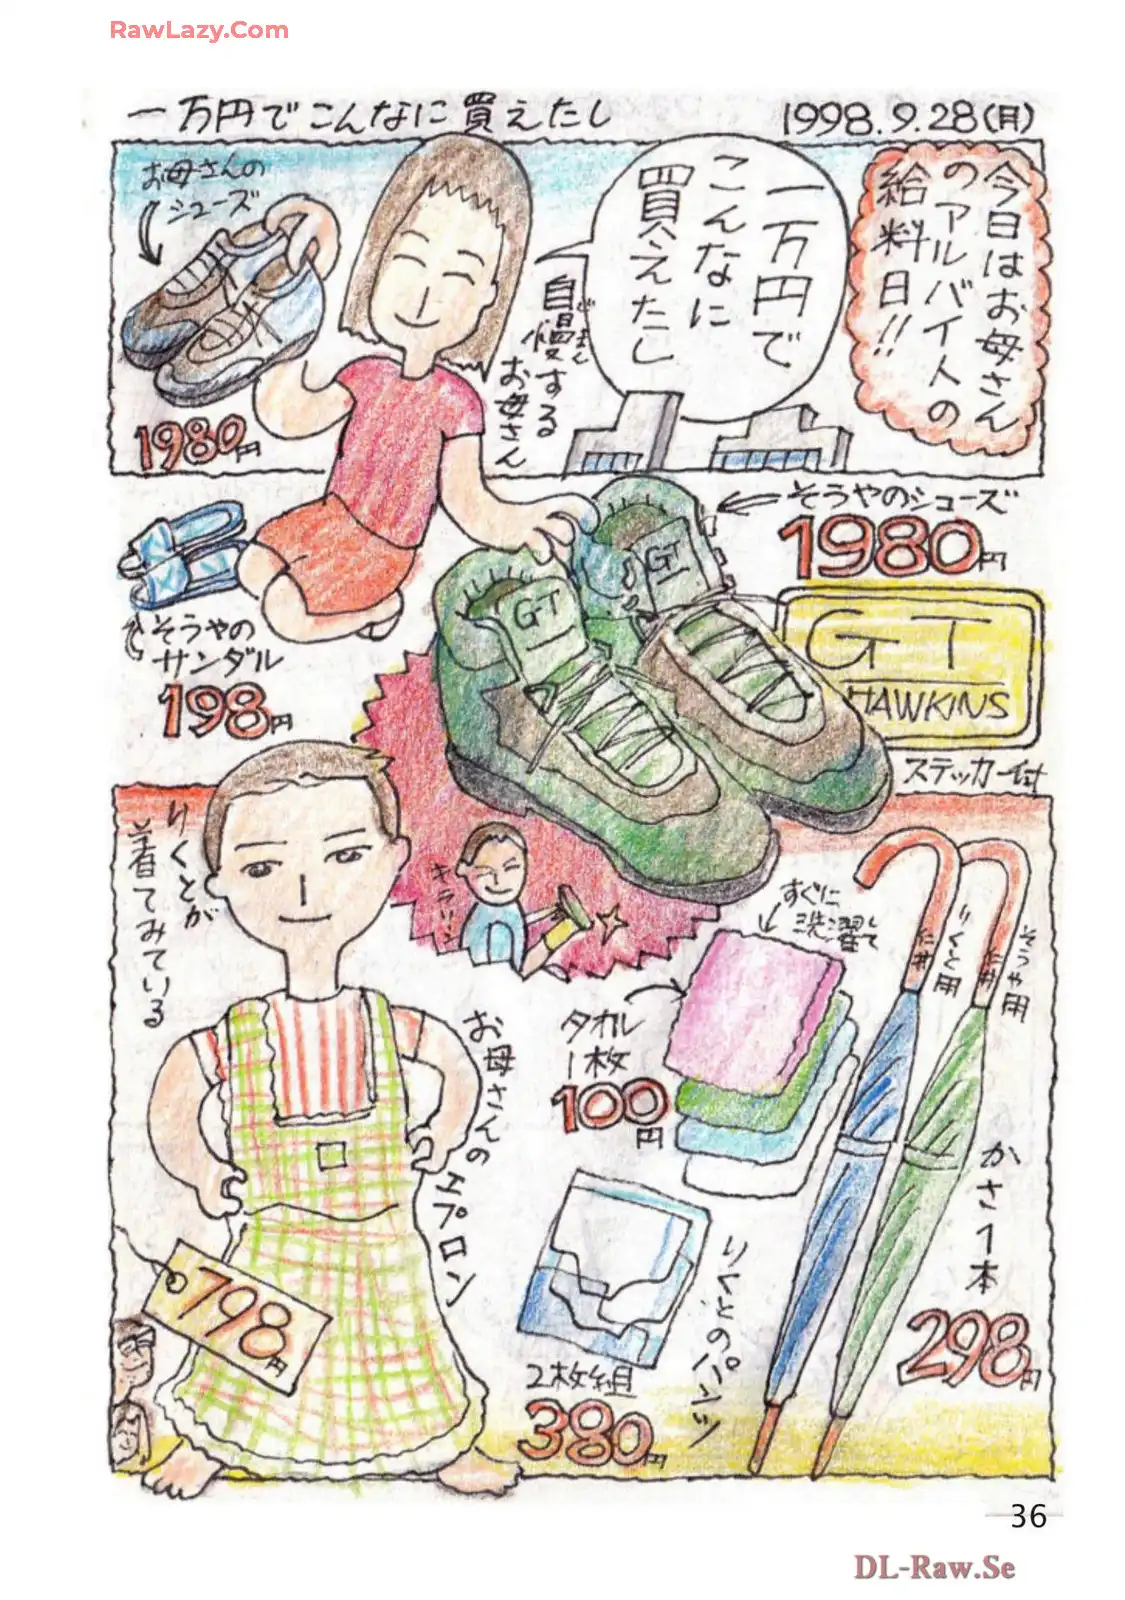 RawLazy.Com
一万円でこんなに買えたし
1998.9.28(月)
今日はお母さん
のアルバイトの
給料日!!
一万円で
こんなに
買えたし
自慢する
じまん
お母さん
お母さんの
シューズ
1980円
そうやのシューズ
1980円
GT
GT
GT
HAWKINS
ステッカー付
そうやの
サンダル
198円
りくとが
着てみている
キラリーン
すぐに
洗濯して
タオル
1枚
100円
お母さんの
エプロン
798円
りくと用
そうや用
かさ1本
298円
りくとのパンツ
2枚組
380円
36
DL-Raw.Se